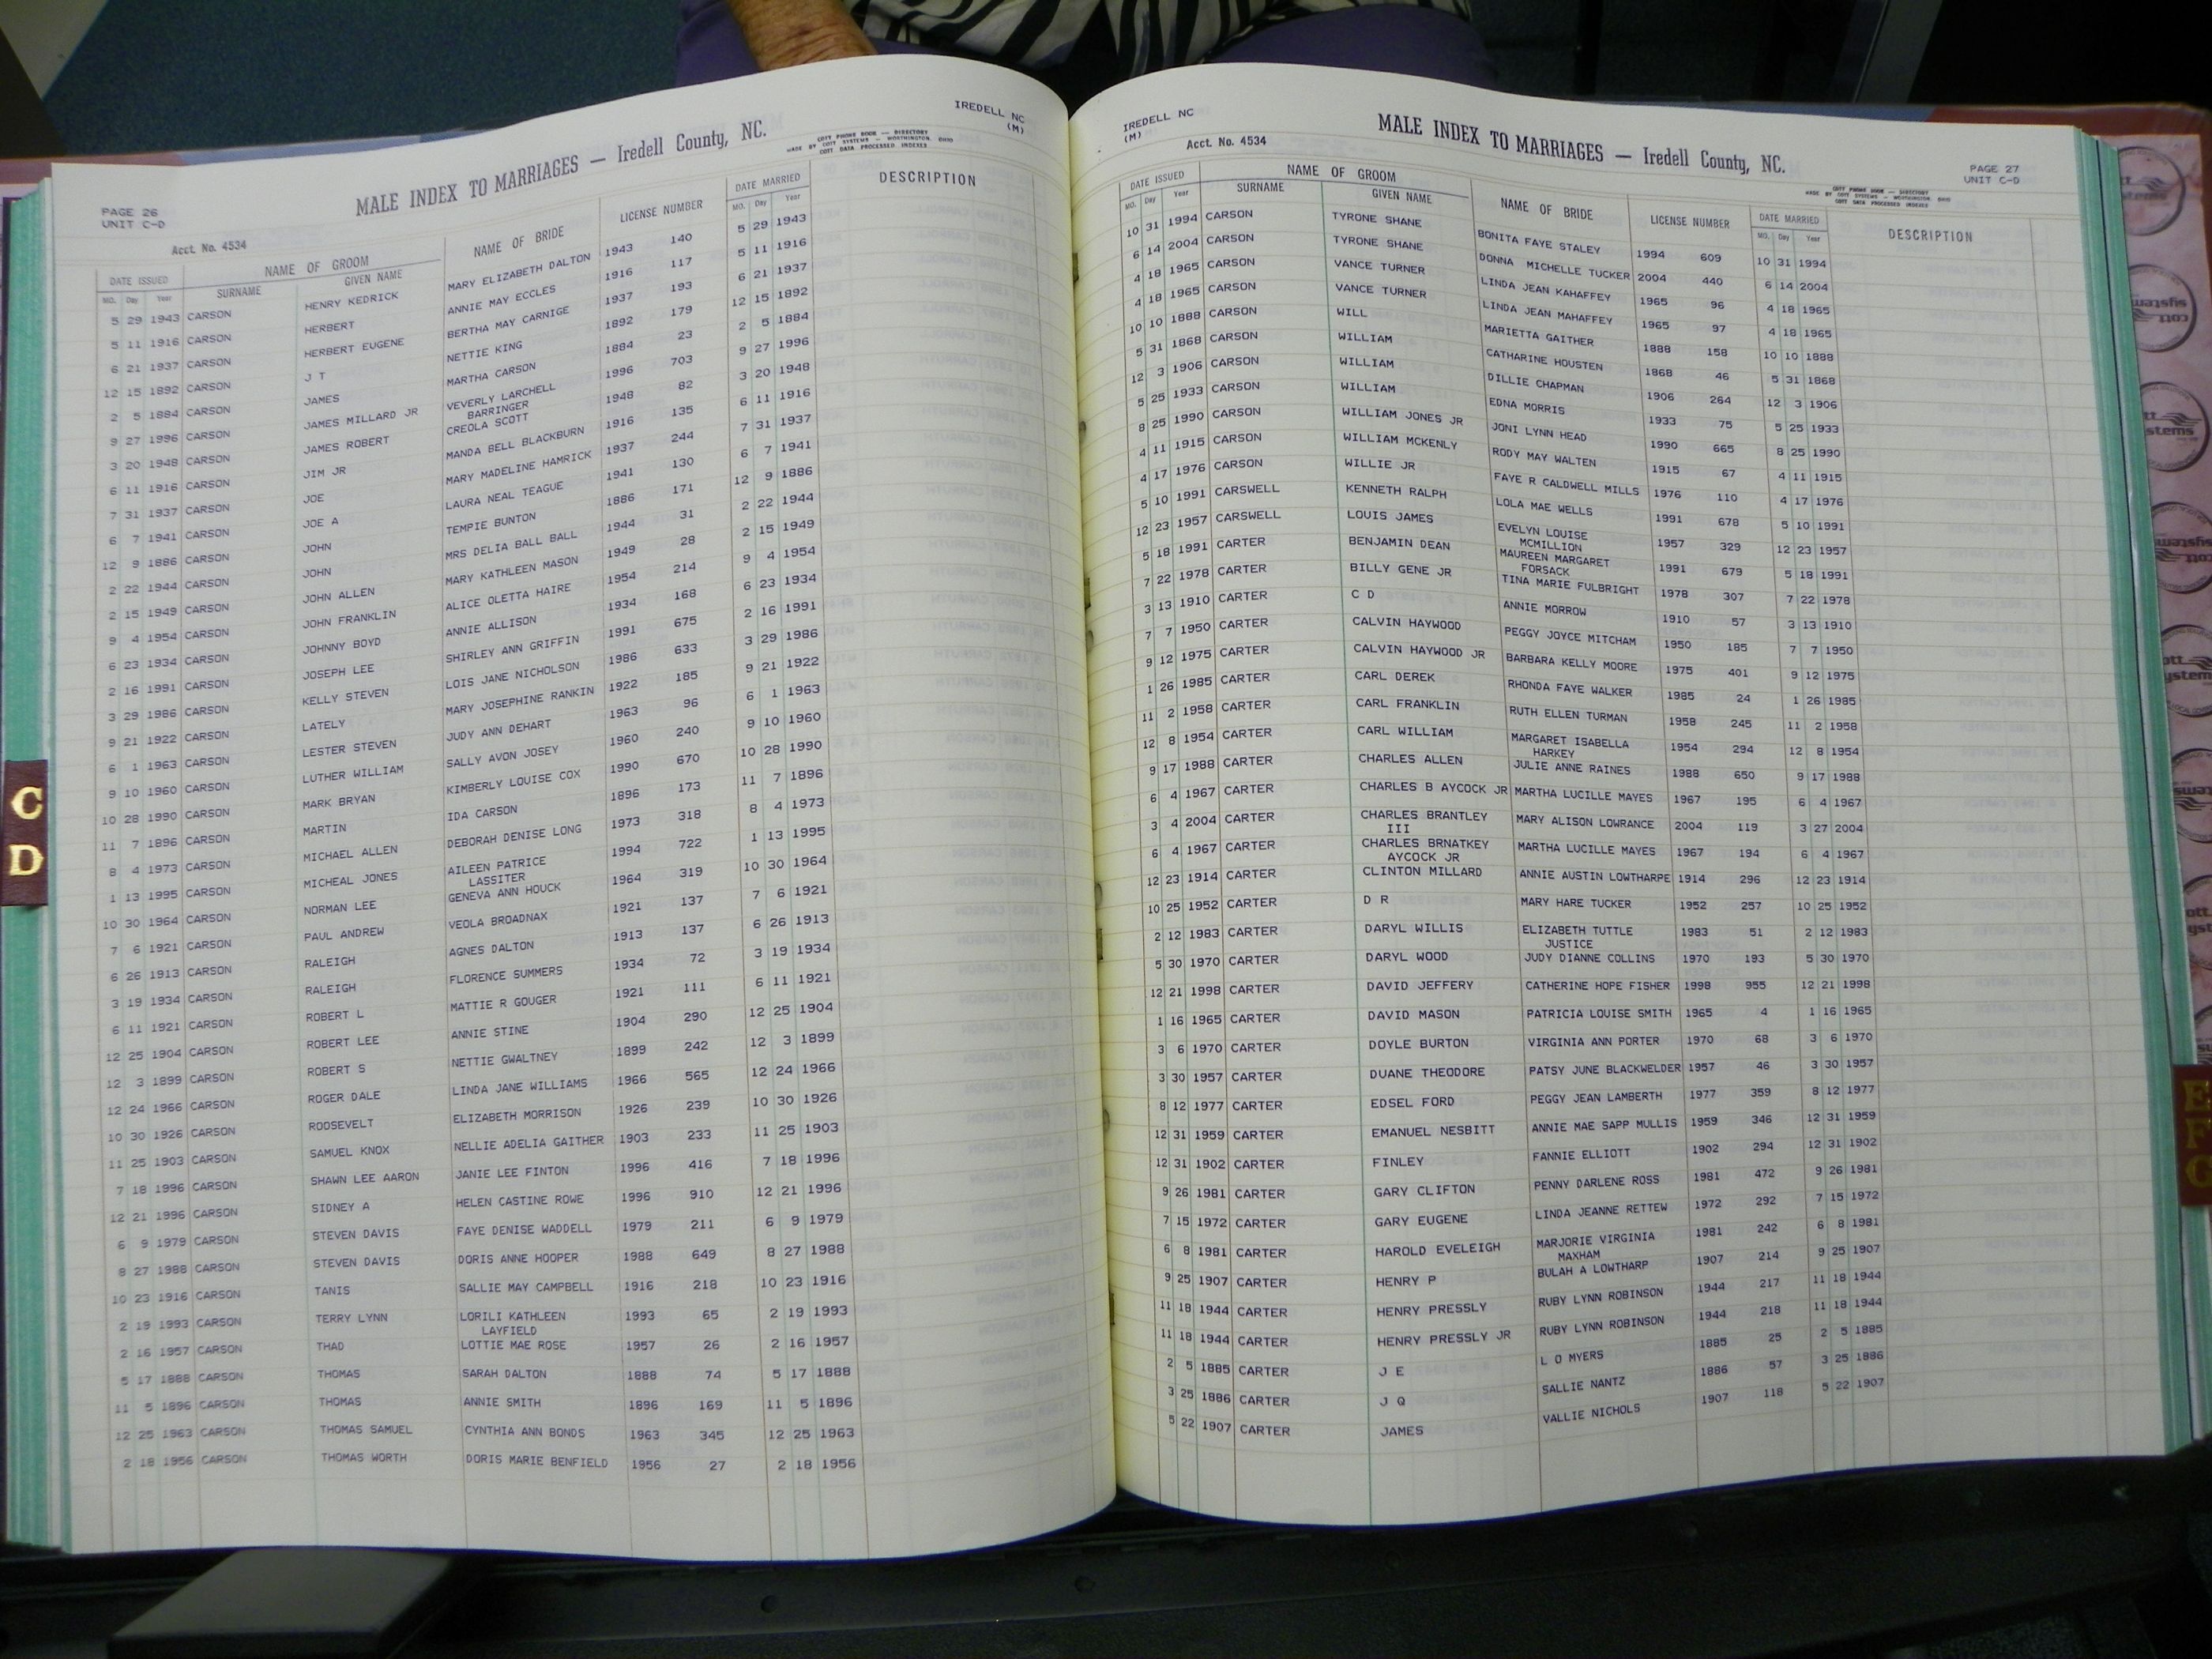 PAGE 26
UNIT C-D
Acct. No. 4534
MALE INDEX TO MARRIAGES — Iredell County, NC.
COTT PHONE BOOK — DIRECTORY
MADE BY COTT SYSTEMS — WORTHINGTON, OHIO
COTT DATA PROCESSED INDEXES
IREDELL NC
(M)
DATE ISSUED NAME OF GROOM NAME OF BRIDE LICENSE NUMBER DATE MARRIED DESCRIPTION
MO. Day Year SURNAME GIVEN NAME MO. Day Year
5 29 1943 CARSON HENRY KEDRICK MARY ELIZABETH DALTON 1943 140 5 29 1943
5 11 1916 CARSON HERBERT ANNIE MAY ECCLES 1916 117 5 11 1916
6 21 1937 CARSON HERBERT EUGENE BERTHA MAY CARNIGE 1937 193 6 21 1937
12 15 1892 CARSON J T NETTIE KING 1892 179 12 15 1892
2 5 1884 CARSON JAMES MARTHA CARSON 1884 23 2 5 1884
9 27 1996 CARSON JAMES MILLARD JR VEVERLY LARCHELL 1996 703 9 27 1996
BARRINGER
3 20 1948 CARSON JAMES ROBERT CREOLA SCOTT 1948 82 3 20 1948
6 11 1916 CARSON JIM JR MANDA BELL BLACKBURN 1916 135 6 11 1916
7 31 1937 CARSON JOE MARY MADELINE HAMRICK 1937 244 7 31 1937
6 7 1941 CARSON JOE A LAURA NEAL TEAGUE 1941 130 6 7 1941
12 9 1886 CARSON JOHN TEMPIE BUNTON 1886 171 12 9 1886
2 22 1944 CARSON JOHN MRS DELIA BALL BALL 1944 31 2 22 1944
2 15 1949 CARSON JOHN ALLEN MARY KATHLEEN MASON 1949 28 2 15 1949
9 4 1954 CARSON JOHN FRANKLIN ALICE OLETTA HAIRE 1954 214 9 4 1954
6 23 1934 CARSON JOHNNY BOYD ANNIE ALLISON 1934 168 6 23 1934
2 16 1991 CARSON JOSEPH LEE SHIRLEY ANN GRIFFIN 1991 675 2 16 1991
3 29 1986 CARSON KELLY STEVEN LOIS JANE NICHOLSON 1986 633 3 29 1986
9 21 1922 CARSON LATELY MARY JOSEPHINE RANKIN 1922 185 9 21 1922
6 1 1963 CARSON LESTER STEVEN JUDY ANN DEHART 1963 96 6 1 1963
9 10 1960 CARSON LUTHER WILLIAM SALLY AVON JOSEY 1960 240 9 10 1960
10 28 1990 CARSON MARK BRYAN KIMBERLY LOUISE COX 1990 670 10 28 1990
11 7 1896 CARSON MARTIN IDA CARSON 1896 173 11 7 1896
8 4 1973 CARSON MICHAEL ALLEN DEBORAH DENISE LONG 1973 318 8 4 1973
1 13 1995 CARSON MICHEAL JONES AILEEN PATRICE 1994 722 1 13 1995
LASSITER
10 30 1964 CARSON NORMAN LEE GENEVA ANN HOUCK 1964 319 10 30 1964
7 6 1921 CARSON PAUL ANDREW VEOLA BROADNAX 1921 137 7 6 1921
6 26 1913 CARSON RALEIGH AGNES DALTON 1913 137 6 26 1913
3 19 1934 CARSON RALEIGH FLORENCE SUMMERS 1934 72 3 19 1934
6 11 1921 CARSON ROBERT L MATTIE R GOUGER 1921 111 6 11 1921
12 25 1904 CARSON ROBERT LEE ANNIE STINE 1904 290 12 25 1904
12 3 1899 CARSON ROBERT S NETTIE GWALTNEY 1899 242 12 3 1899
12 24 1966 CARSON ROGER DALE LINDA JANE WILLIAMS 1966 565 12 24 1966
10 30 1926 CARSON ROOSEVELT ELIZABETH MORRISON 1926 239 10 30 1926
11 25 1903 CARSON SAMUEL KNOX NELLIE ADELIA GAITHER 1903 233 11 25 1903
7 18 1996 CARSON SHAWN LEE AARON JANIE LEE FINTON 1996 416 7 18 1996
12 21 1996 CARSON SIDNEY A HELEN CASTINE ROWE 1996 910 12 21 1996
6 9 1979 CARSON STEVEN DAVIS FAYE DENISE WADDELL 1979 211 6 9 1979
8 27 1988 CARSON STEVEN DAVIS DORIS ANNE HOOPER 1988 649 8 27 1988
10 23 1916 CARSON TANIS SALLIE MAY CAMPBELL 1916 218 10 23 1916
2 19 1993 CARSON TERRY LYNN LORILI KATHLEEN 1993 65 2 19 1993
LAYFIELD
2 16 1957 CARSON THAD LOTTIE MAE ROSE 1957 26 2 16 1957
5 17 1888 CARSON THOMAS SARAH DALTON 1888 74 5 17 1888
11 5 1896 CARSON THOMAS ANNIE SMITH 1896 169 11 5 1896
12 25 1963 CARSON THOMAS SAMUEL CYNTHIA ANN BONDS 1963 345 12 25 1963
2 18 1956 CARSON THOMAS WORTH DORIS MARIE BENFIELD 1956 27 2 18 1956
C
D
IREDELL NC
(M)
Acct. No. 4534
MALE INDEX TO MARRIAGES — Iredell County, NC.
PAGE 27
UNIT C-D
COTT PHONE BOOK — DIRECTORY
MADE BY COTT SYSTEMS — WORTHINGTON, OHIO
COTT DATA PROCESSED INDEXES
DATE ISSUED NAME OF GROOM NAME OF BRIDE LICENSE NUMBER DATE MARRIED DESCRIPTION
MO. Day Year SURNAME GIVEN NAME MO. Day Year
10 31 1994 CARSON TYRONE SHANE BONITA FAYE STALEY 1994 609 10 31 1994
6 14 2004 CARSON TYRONE SHANE DONNA MICHELLE TUCKER 2004 440 6 14 2004
4 18 1965 CARSON VANCE TURNER LINDA JEAN KAHAFFEY 1965 96 4 18 1965
4 18 1965 CARSON VANCE TURNER LINDA JEAN MAHAFFEY 1965 97 4 18 1965
10 10 1888 CARSON WILL MARIETTA GAITHER 1888 158 10 10 1888
5 31 1868 CARSON WILLIAM CATHARINE HOUSTEN 1868 46 5 31 1868
12 3 1906 CARSON WILLIAM DILLIE CHAPMAN 1906 264 12 3 1906
5 25 1933 CARSON WILLIAM EDNA MORRIS 1933 75 5 25 1933
8 25 1990 CARSON WILLIAM JONES JR JONI LYNN HEAD 1990 665 8 25 1990
4 11 1915 CARSON WILLIAM MCKENLY RODY MAY WALTEN 1915 67 4 11 1915
4 17 1976 CARSON WILLIE JR FAYE R CALDWELL MILLS 1976 110 4 17 1976
5 10 1991 CARSWELL KENNETH RALPH LOLA MAE WELLS 1991 678 5 10 1991
12 23 1957 CARSWELL LOUIS JAMES EVELYN LOUISE 1957 329 12 23 1957
MCMILLION
5 18 1991 CARTER BENJAMIN DEAN MAUREEN MARGARET 1991 679 5 18 1991
FORSACK
7 22 1978 CARTER BILLY GENE JR TINA MARIE FULBRIGHT 1978 307 7 22 1978
3 13 1910 CARTER C D ANNIE MORROW 1910 57 3 13 1910
7 7 1950 CARTER CALVIN HAYWOOD PEGGY JOYCE MITCHAM 1950 185 7 7 1950
9 12 1975 CARTER CALVIN HAYWOOD JR BARBARA KELLY MOORE 1975 401 9 12 1975
1 26 1985 CARTER CARL DEREK RHONDA FAYE WALKER 1985 24 1 26 1985
11 2 1958 CARTER CARL FRANKLIN RUTH ELLEN TURMAN 1958 245 11 2 1958
12 8 1954 CARTER CARL WILLIAM MARGARET ISABELLA 1954 294 12 8 1954
HARKEY
9 17 1988 CARTER CHARLES ALLEN JULIE ANNE RAINES 1988 650 9 17 1988
6 4 1967 CARTER CHARLES B AYCOCK JR MARTHA LUCILLE MAYES 1967 195 6 4 1967
3 4 2004 CARTER CHARLES BRANTLEY MARY ALISON LOWRANCE 2004 119 3 27 2004
III
6 4 1967 CARTER CHARLES BRNATKEY MARTHA LUCILLE MAYES 1967 194 6 4 1967
AYCOCK JR
12 23 1914 CARTER CLINTON MILLARD ANNIE AUSTIN LOWTHARPE 1914 296 12 23 1914
10 25 1952 CARTER D R MARY HARE TUCKER 1952 257 10 25 1952
2 12 1983 CARTER DARYL WILLIS ELIZABETH TUTTLE 1983 51 2 12 1983
JUSTICE
5 30 1970 CARTER DARYL WOOD JUDY DIANNE COLLINS 1970 193 5 30 1970
12 21 1998 CARTER DAVID JEFFERY CATHERINE HOPE FISHER 1998 955 12 21 1998
1 16 1965 CARTER DAVID MASON PATRICIA LOUISE SMITH 1965 4 1 16 1965
3 6 1970 CARTER DOYLE BURTON VIRGINIA ANN PORTER 1970 68 3 6 1970
3 30 1957 CARTER DUANE THEODORE PATSY JUNE BLACKWELDER 1957 46 3 30 1957
8 12 1977 CARTER EDSEL FORD PEGGY JEAN LAMBERTH 1977 359 8 12 1977
12 31 1959 CARTER EMANUEL NESBITT ANNIE MAE SAPP MULLIS 1959 346 12 31 1959
12 31 1902 CARTER FINLEY FANNIE ELLIOTT 1902 294 12 31 1902
9 26 1981 CARTER GARY CLIFTON PENNY DARLENE ROSS 1981 472 9 26 1981
7 15 1972 CARTER GARY EUGENE LINDA JEANNE RETTEW 1972 292 7 15 1972
6 8 1981 CARTER HAROLD EVELEIGH MARJORIE VIRGINIA 1981 242 6 8 1981
MAXHAM
9 25 1907 CARTER HENRY P BULAH A LOWTHARP 1907 214 9 25 1907
11 18 1944 CARTER HENRY PRESSLY RUBY LYNN ROBINSON 1944 217 11 18 1944
11 18 1944 CARTER HENRY PRESSLY JR RUBY LYNN ROBINSON 1944 218 11 18 1944
2 5 1885 CARTER J E L O MYERS 1885 25 2 5 1885
3 25 1886 CARTER J Q SALLIE NANTZ 1886 57 3 25 1886
5 22 1907 CARTER JAMES VALLIE NICHOLS 1907 118 5 22 1907
E
F
G